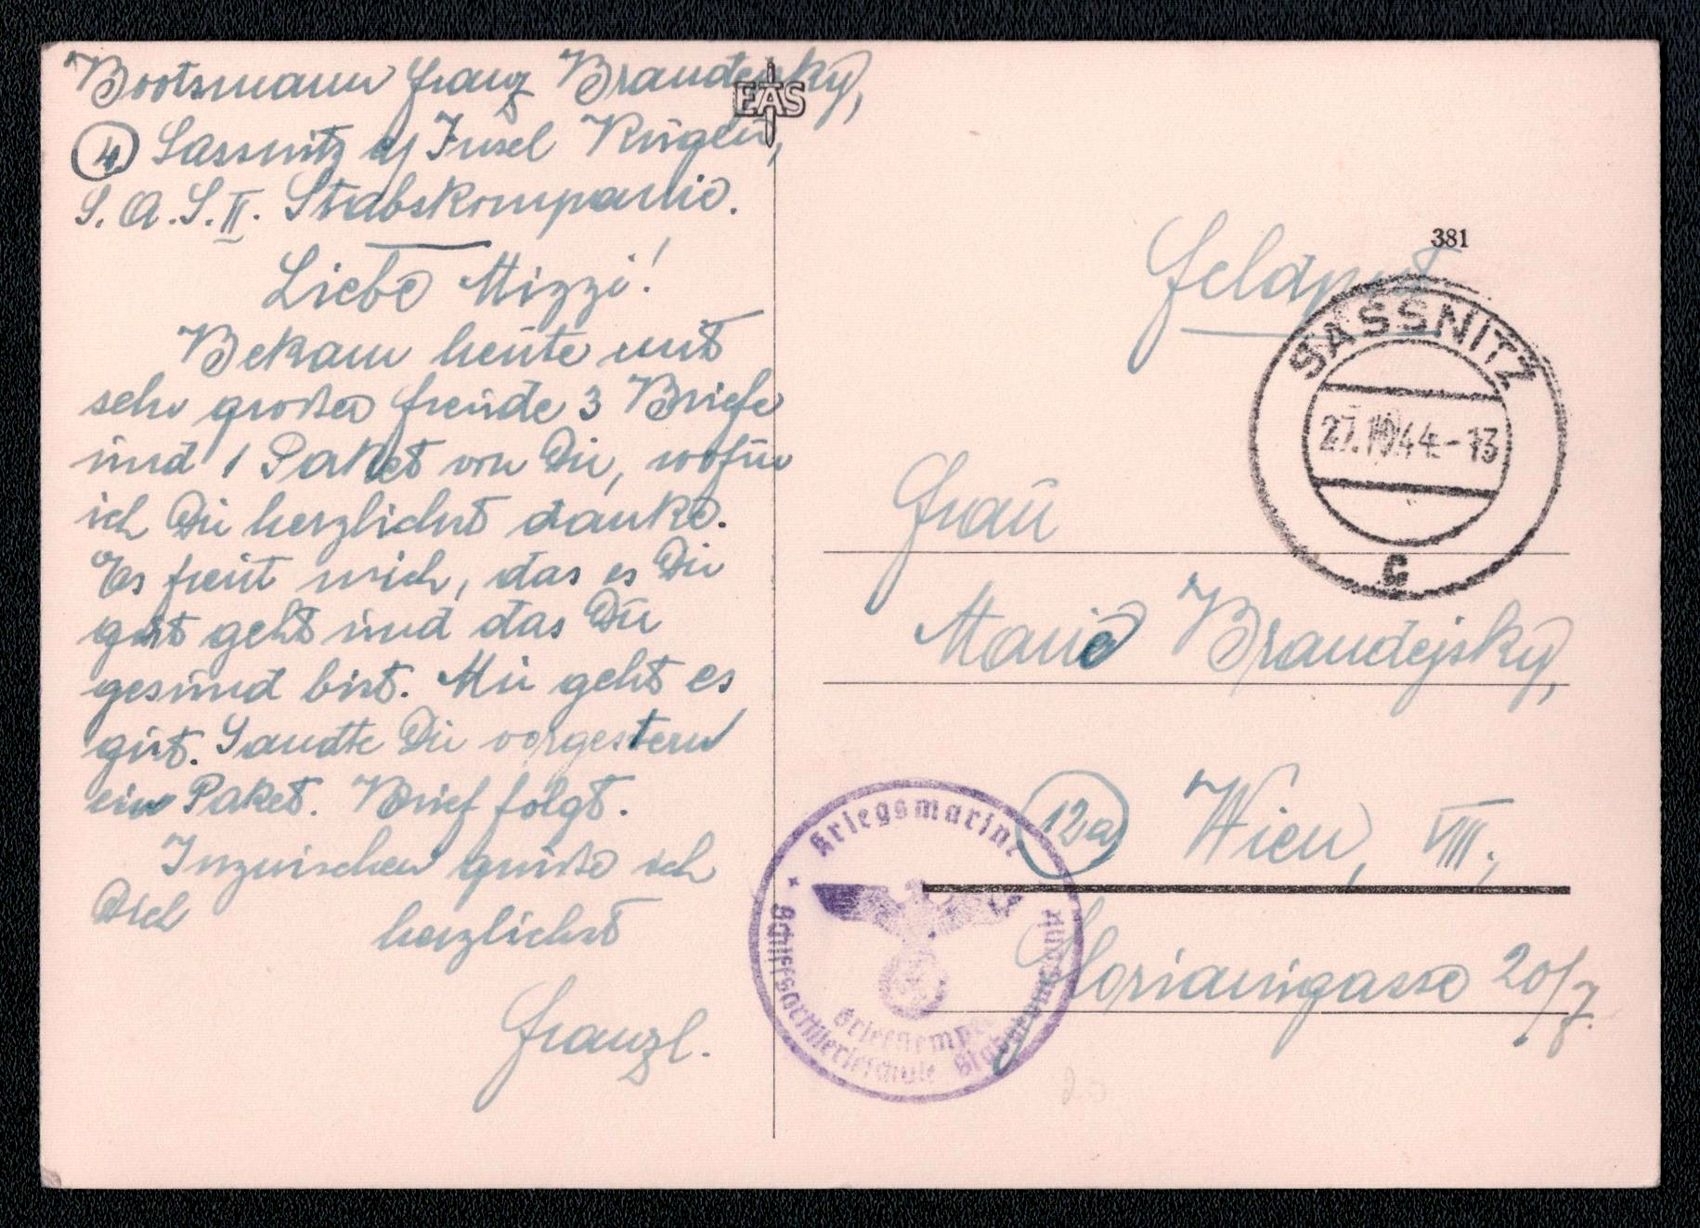 Bootsmann Franz Brandejský,
EAS
④ Sassnitz a/ Insel Rügen,
S. A. S. II. Stabskompanie.
Liebe Mizzi!
Bekam heute mit
sehr großer Freude 3 Briefe
und 1 Paket von Dir, wofür
ich Dir herzlichst danke.
Es freut mich, das es Dir
gut geht und das Du
gesund bist. Mir geht es
gut. Sandte Dir vorgestern
ein Paket. Brief folgt.
Inzwischen grüße ich
Dich herzlichst
Franzl.
381
Feldpost
SASSNITZ
27.10.44.-13
c
Frau
Marie Brandejský,
12a Wien, VIII.,
Florianigasse 20/7.
Kriegsmarine
Schiffsartillerieschule
Briefstempel